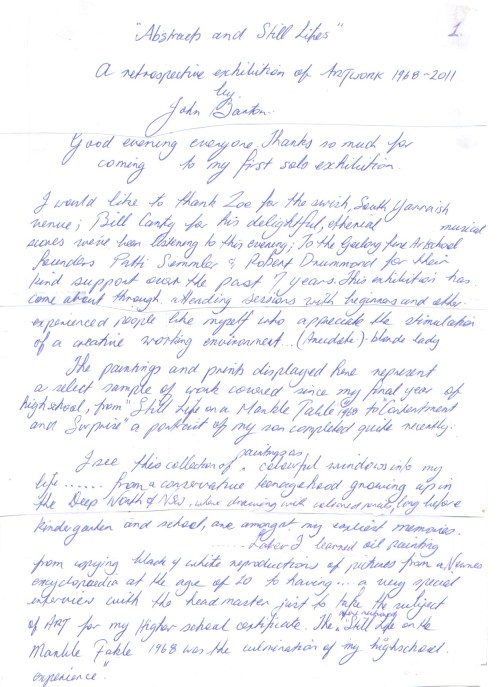 "Abstracts and Still Lifes"
1.
A retrospective exhibition of ARTWORK 1968-2011
by
John Barton.
Good evening everyone, Thanks so much for
coming to my first solo exhibition.
I would like to thank Zoe for the swish, South Yarraish
venue; Bill Canty for his delightful, etherial musical
scores we've been listening to this evening; To the Geelong Fine Artschool
founders Patti Semmler & Robert Drummond for their
kind support over the past 7 years. This exhibition has
come about through attending sessions with beginners and other
experienced people like myself who appreciate the stimulation
of a creative working environment... (Anecdote) - blonde lady
The paintings and prints displayed here represent
a select sample of work covered since my final year of
highschool, from "Still Life on a Marble Table 1968 to "Contentment
and Surprise" a portrait of my son completed quite recently.
I see this collection of paintings as colourful windows into my
life ...... from a conservative teenagehood growing up in
the Deep North of NSW, where drawing with coloured, long before
kindergarden and school, are amongst my earliest memories.
...... Later I learned oil painting
from copying black & white reproductions of pictures from a Newnes
encyclopaedia at the age of 10 to having... a very special
interview with the headmaster just to take the subject
of ART for my Higher school certificate. The "Still Life on the
Marble Table 1968 was the culmination of my highschool
experience."